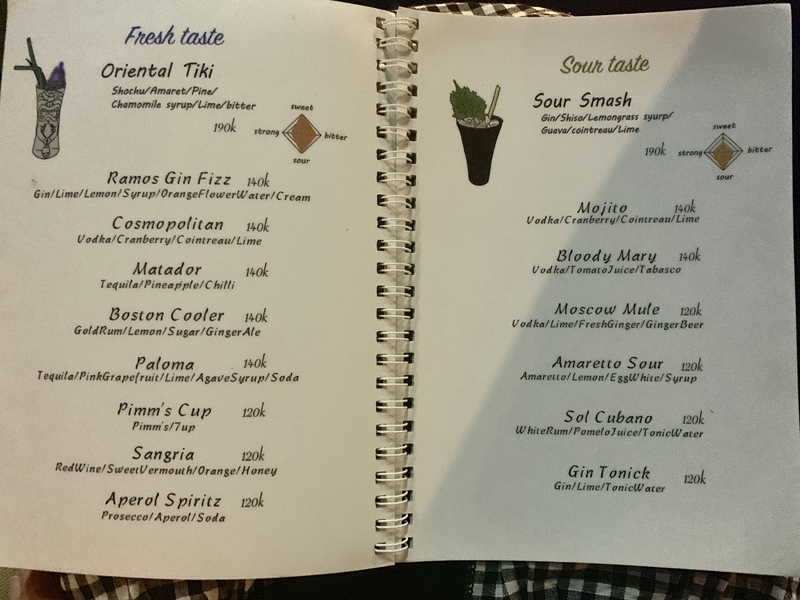 Fresh taste
Oriental Tiki
Shochu/Amaret/Pine/
Chamomile syrup/Lime/bitter
190k
sweet
strong
bitter
sour
Ramos Gin Fizz 140k
Gin/Lime/Lemon/Syrup/OrangeFlowerWater/Cream
Cosmopolitan 140k
Vodka/Cranberry/Cointreau/Lime
Matador 140k
Tequila/Pineapple/Chilli
Boston Cooler 140k
GoldRum/Lemon/Sugar/GingerAle
Paloma 140k
Tequila/PinkGrapefruit/Lime/AgaveSyrup/Soda
Pimm's Cup 120k
Pimm's/7up
Sangria 120k
RedWine/SweetVermouth/Orange/Honey
Aperol Spiritz 120k
Prosecco/Aperol/Soda
Sour taste
Sour Smash
Gin/Shiso/Lemongrass syurp/
Guava/cointreau/Lime
190k
sweet
strong
bitter
sour
Mojito 140k
Vodka/Cranberry/Cointreau/Lime
Bloody Mary 140k
Vodka/TomatoJuice/Tabasco
Moscow Mule 120k
Vodka/Lime/FreshGinger/GingerBeer
Amaretto Sour 120k
Amaretto/Lemon/EggWhite/Syrup
Sol Cubano 120k
WhiteRum/PomeloJuice/TonicWater
Gin Tonick 120k
Gin/Lime/TonicWater